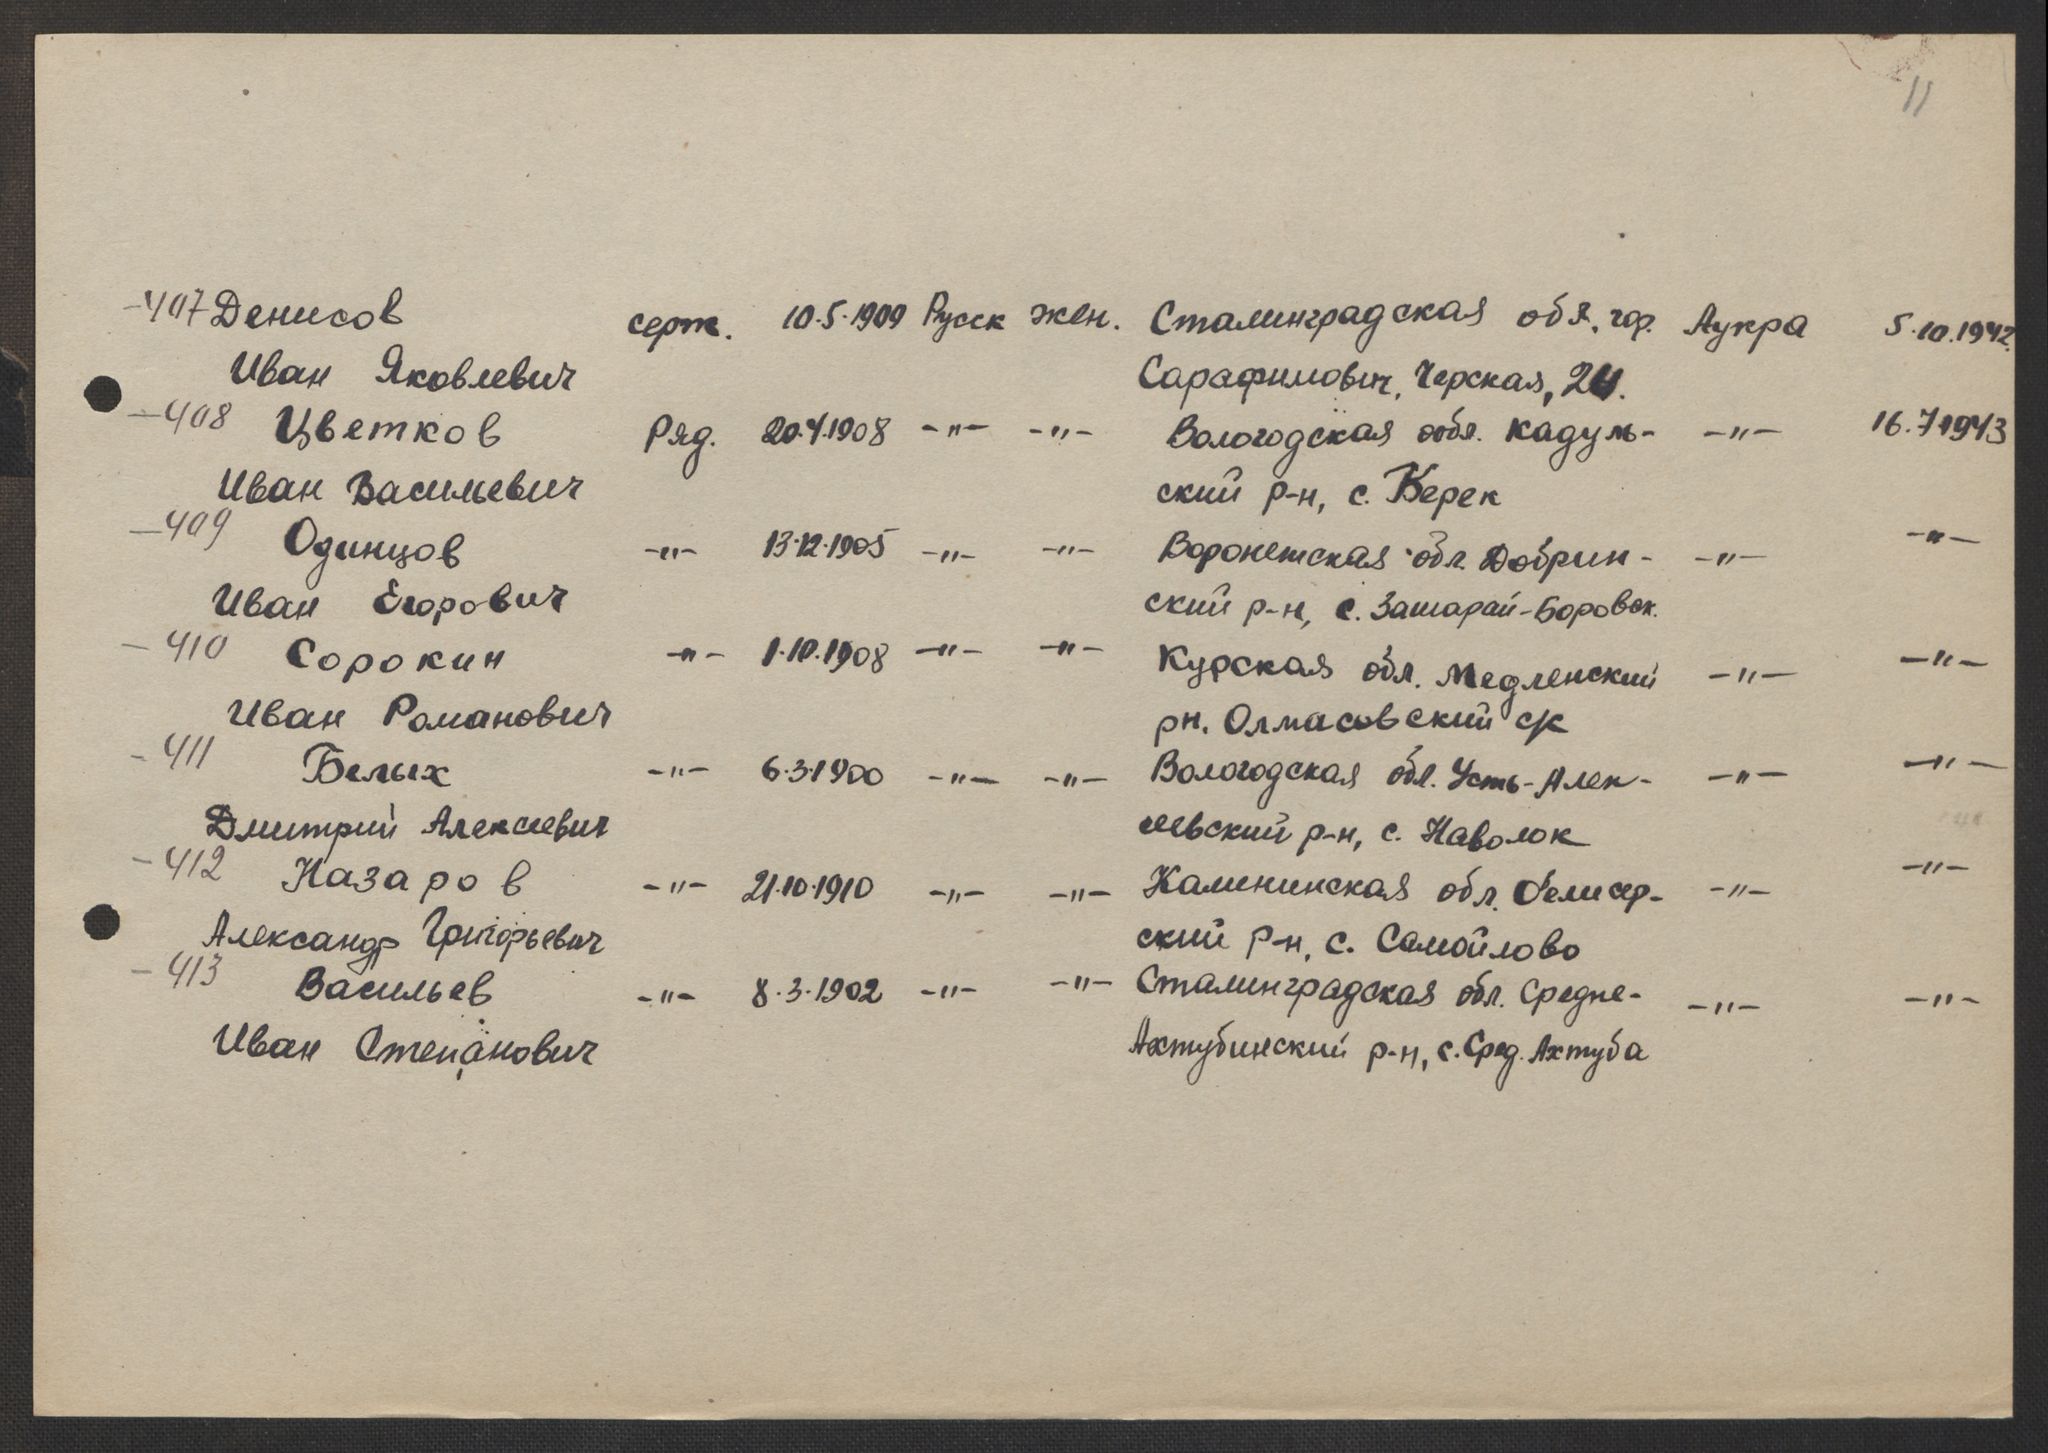 11
-407 Денисов серж. 10.5.1909 Русск жен. Сталинградская обл. гор. Аукра 5.10.1942.
Иван Яковлевич Сарафимович, Черская, 24.
-408 Цветков Ряд. 20.4.1908 -"- -"- Вологодская обл. Кадуль- -"- 16.7.1943
Иван Васильевич ский р-н, с. Верек
-409 Одинцов -"- 13.12.1905 -"- -"- Воронежская обл. Добрин- -"- -"-
Иван Егорович ский р-н, с. Зашарай-Боровск.
-410 Сорокин -"- 1.10.1908 -"- -"- Курская обл. Медленский -"- -"-
Иван Романович рн. Олмасовский с/к
-411 Белых -"- 6.3.1900 -"- -"- Вологодская обл. Усть-Алек- -"- -"-
Дмитрий Алексеевич сеевский р-н, с. Наволок
-412 Назаров -"- 21.10.1910 -"- -"- Калининская обл. -"- -"-
Александр Григорьевич ский р-н, с. Самойлово
-413 Васильев -"- 8.3.1902 -"- -"- Сталинградская обл. Средне- -"- -"-
Иван Степанович Ахтубинский р-н, с. Сред. Ахтуба